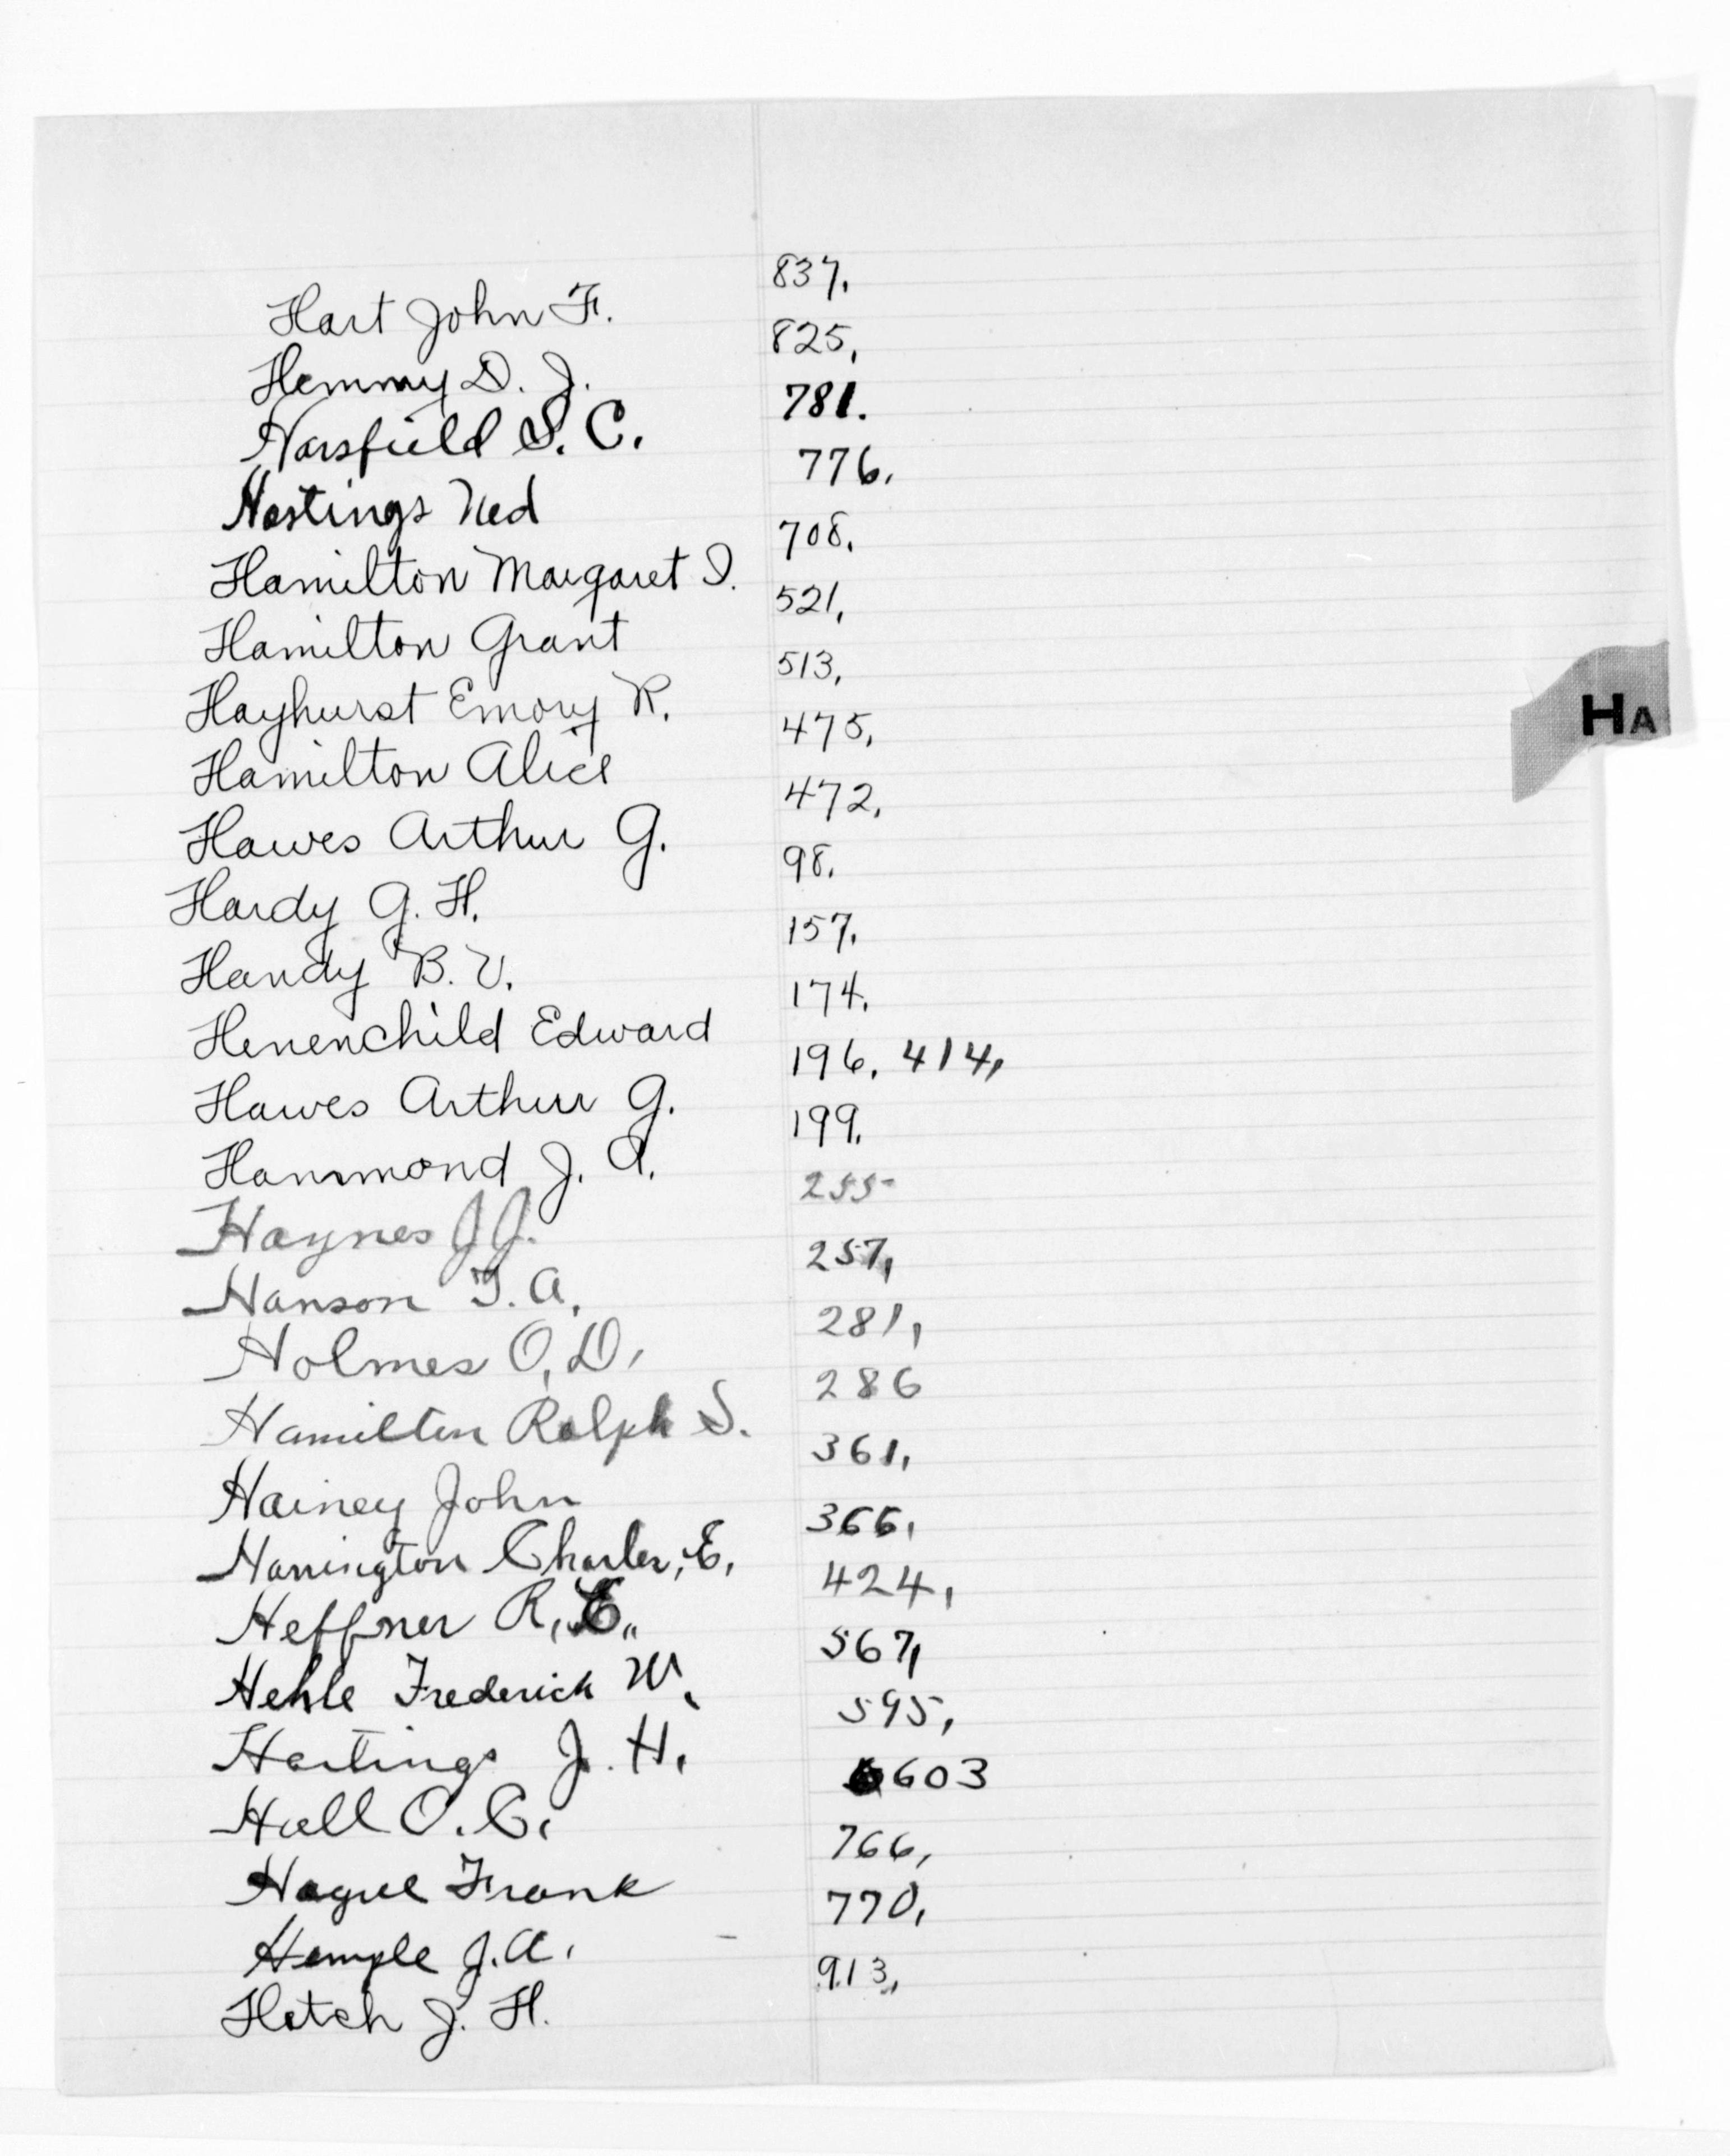 Hart John F. 837.
Hemmy D. J. 825,
Harsfield S. C. 781.
Hastings Ned 776,
Hamilton Margaret I. 708.
Hamilton Grant 521,
Hayhurst Emory R. 513,
Hamilton Alice 475,
Hawes Arthur G. 472,
Hardy G. H. 98.
Handy B. V. 157,
Henenchild Edward 174.
Hawes Arthur G. 196, 414,
Hammond J. A. 199.
Haynes J J. 255-
Hanson T. A. 257,
HA
Holmes O. D. 281,
Hamilton Ralph S. 286
Hainey John 361,
Harrington Charles, E. 366,
Heffner R. E. 424,
Hehle Frederick W. 567,
Hastings J. H. 595,
Hall O. C. 603
Hague Frank 766,
Hemple J. A. 770,
Hatch J. H. 913,